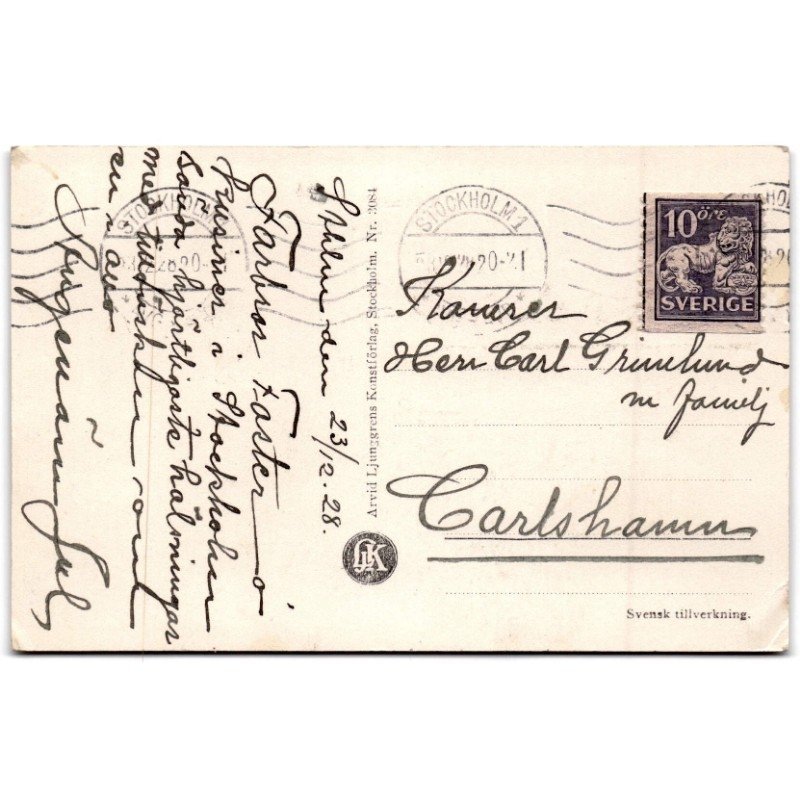 Sthlm den 23/12. 28.
Farbror Faster o
kusiner i Stockholm
sända hjärtligaste hälsningar
med tillönskan om
en råd
angenäm Jul,
Arvid Ljunggrens Konstförlag, Stockholm. Nr. 3084
LJK
STOCKHOLM 1
10 öre
SVERIGE
Kamrer
Herr Carl Grimlund
m familj
Carlshamn
Svensk tillverkning.